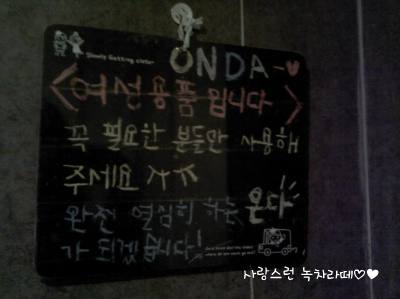 ONDA
<여성용품입니다>
꼭 필요한 분들만 사용해
주세요 ㅠㅠ
완전 열심히 하는 온다
가 되겠습니다!
사랑스런 녹차라떼♡♥